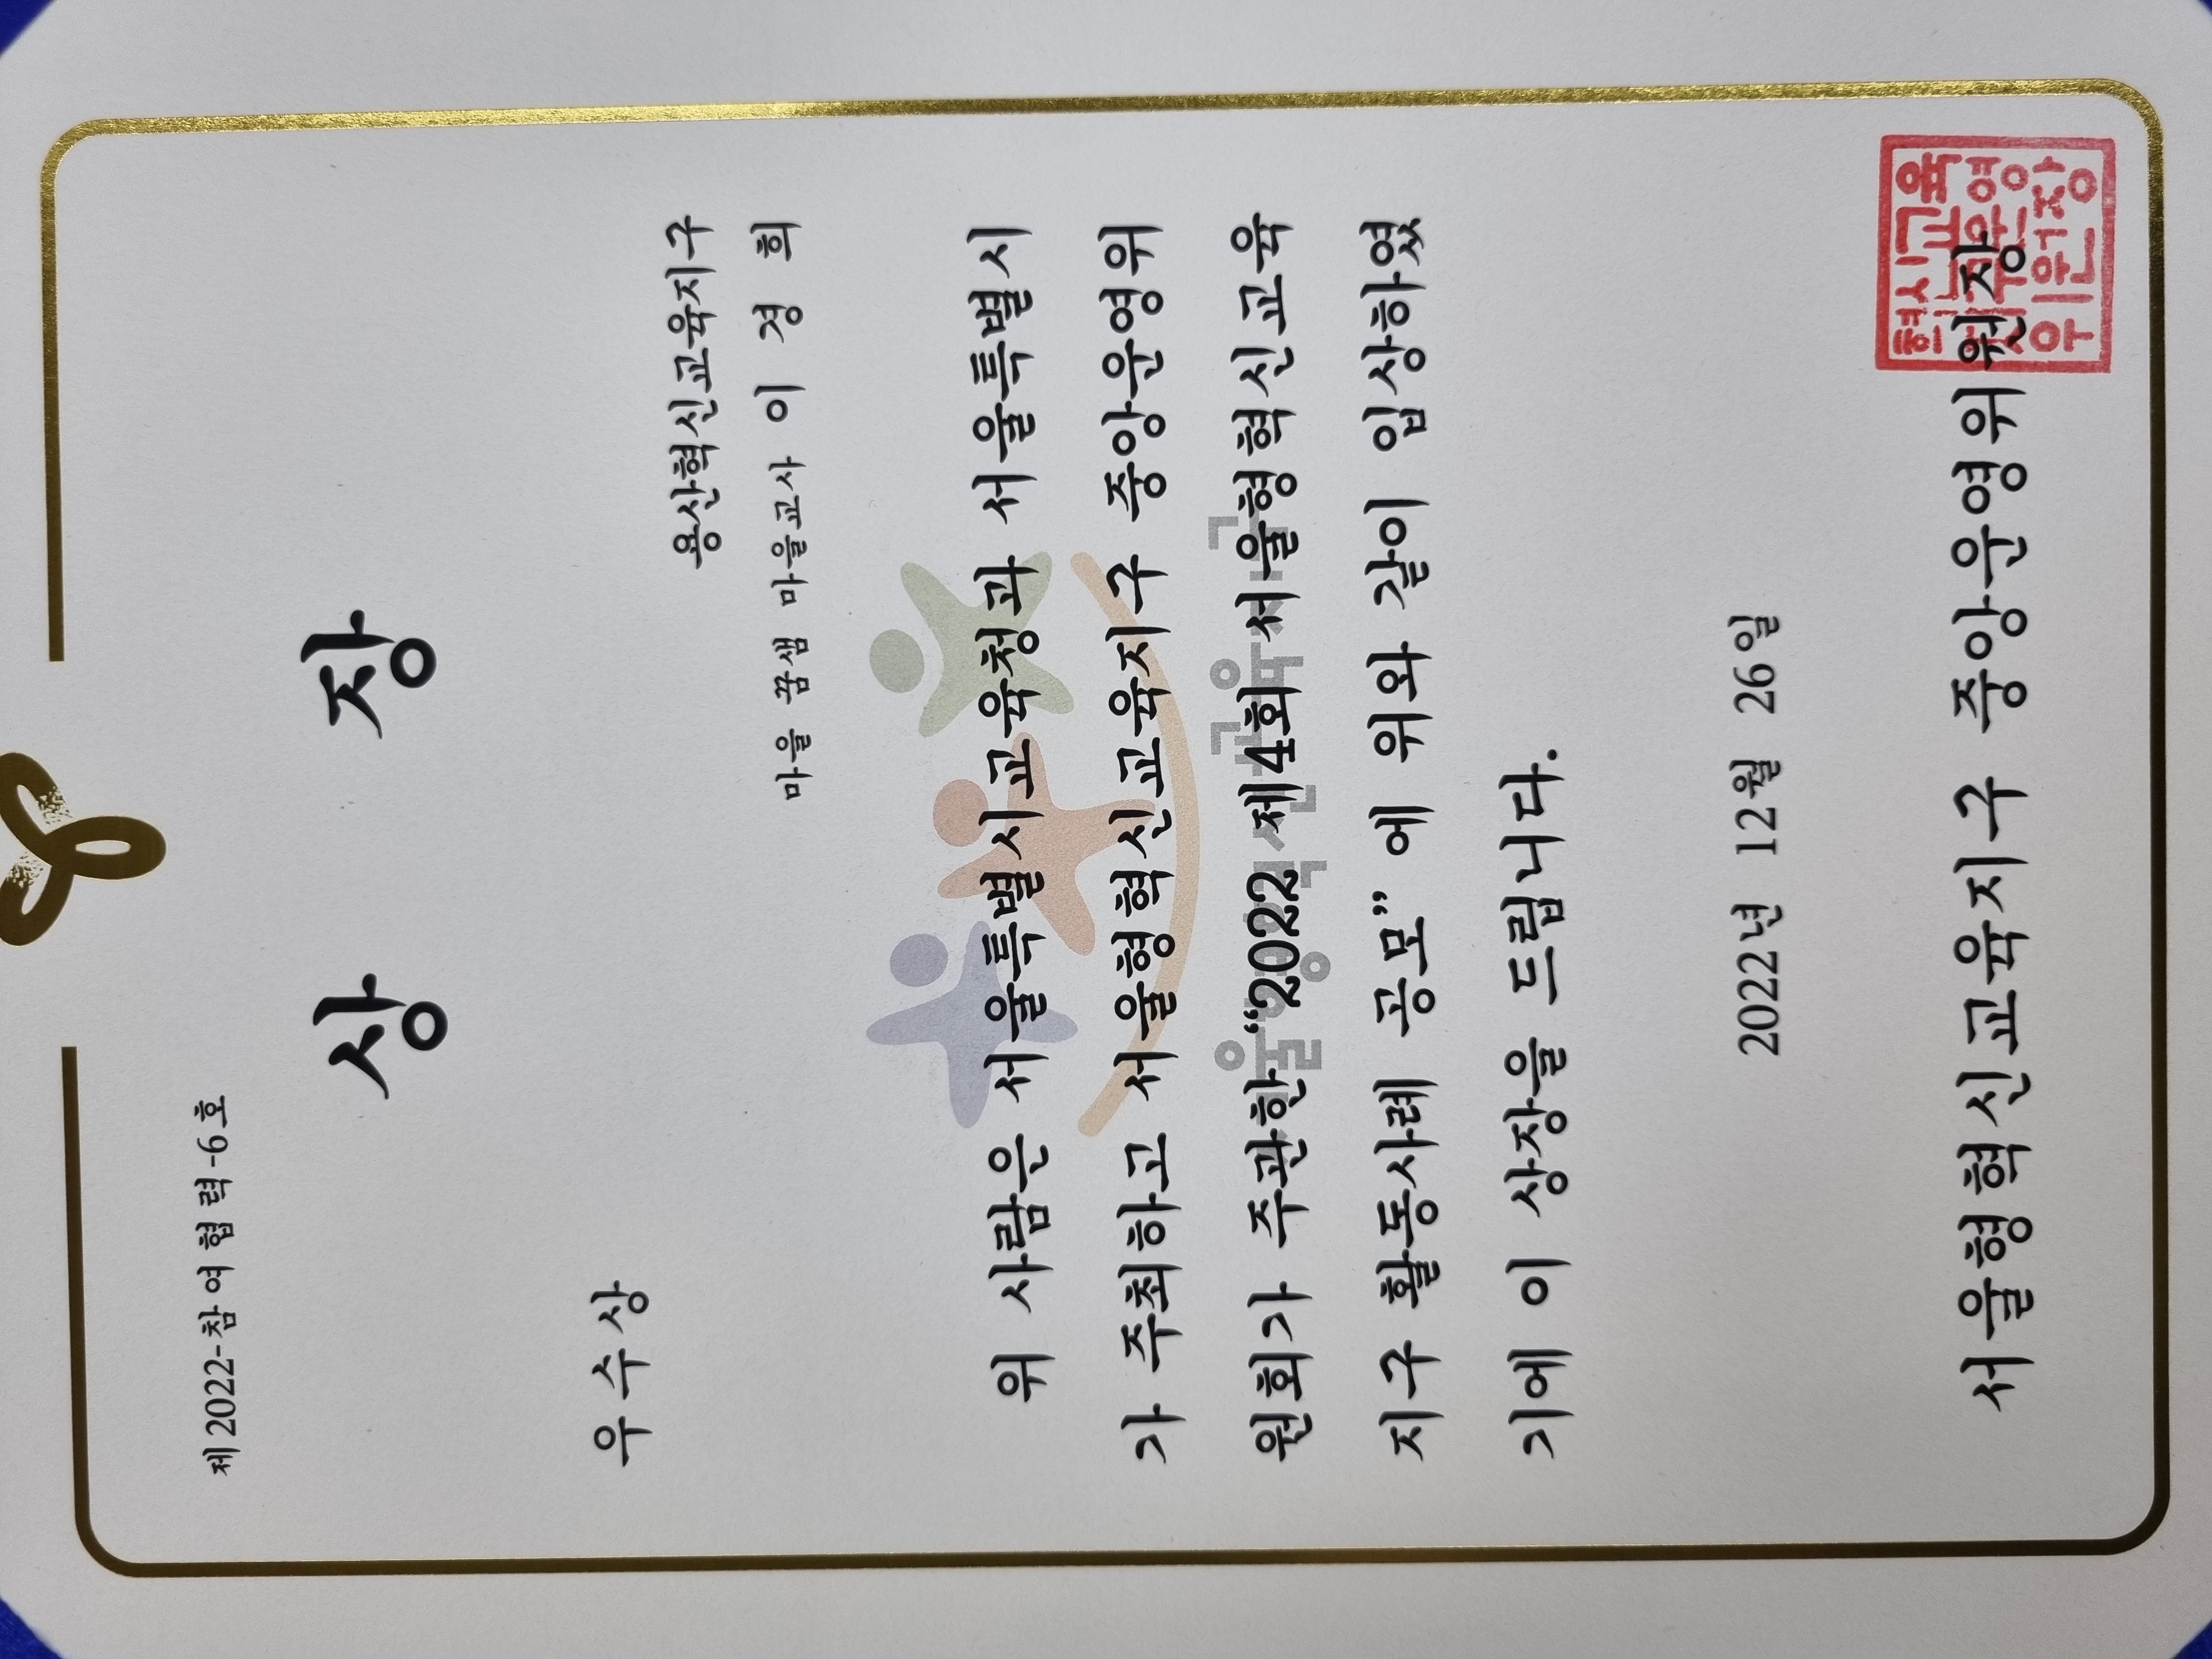 제2022-참여협력-6호
상 장
우수상
용산혁신교육지구
마을 꿈샘 마을교사 이 경 희
위 사람은 서울특별시교육청과 서울특별시
가 주최하고 서울형혁신교육지구 중앙운영위
원회가 주관한 “2022 제4회 서울형혁신교육
지구 활동사례 공모” 에 위와 같이 입상하였
기에 이 상장을 드립니다.
2022년 12월 26일
서울형혁신교육지구 중앙운영위원장